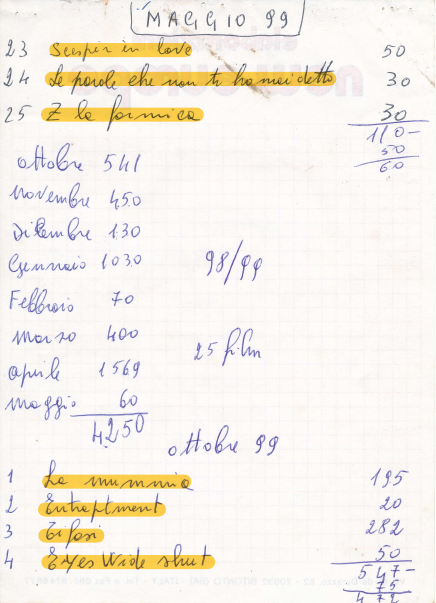 MAGGIO 99
23 Scespir in love 50
24 Le parole che non ti ho mai detto 30
25 Z la formica 30
110-
50
60
ottobre 541
novembre 450
Dicembre 130
Gennaio 1030
98/99
Febbraio 70
marzo 400
25 film
aprile 1569
maggio 60
4250
ottobre 99
1 La mummia 195
2 Entraptment 20
3 Tifosi 282
4 Eyes Wide shut 50
547-
75
472